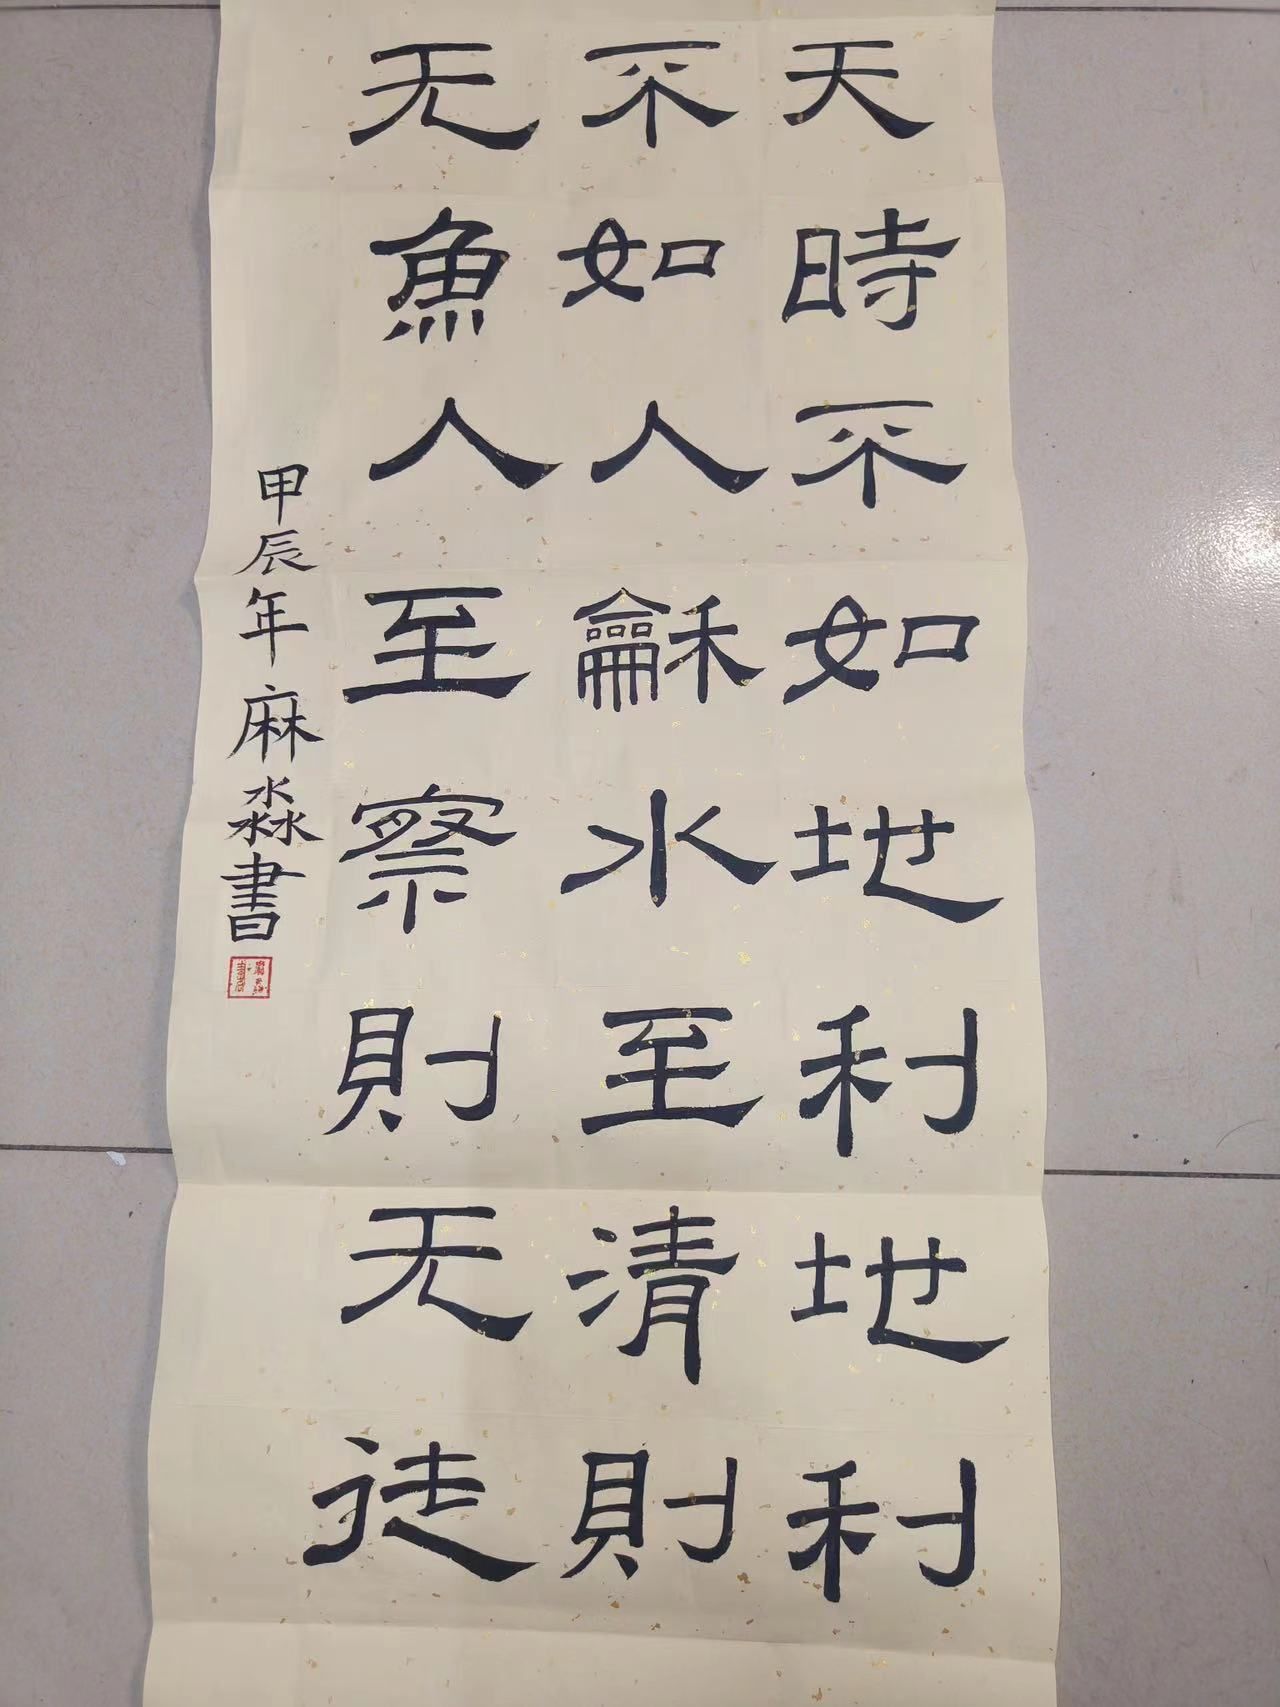 天時不如地利地利
不如人龢水至清則
无魚人至察則无徒
甲辰年麻淼書